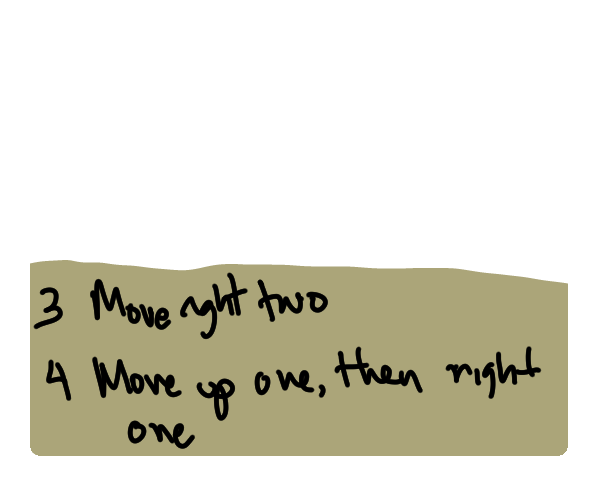 3 Move right two
4 Move up one, then right
one